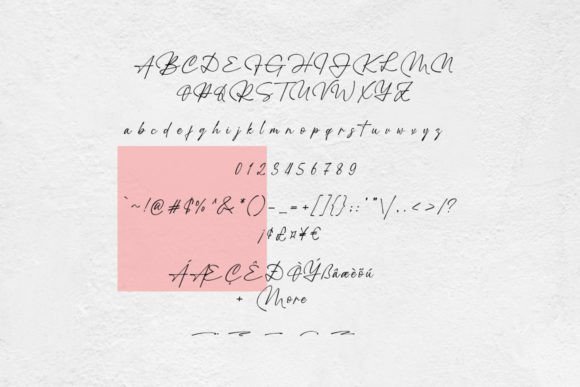 A B C D E F G H I J K L M N
O P Q R S T U V W X Y Z
a b c d e f g h i j k l m n o p q r s t u v w x y z
0 1 2 3 4 5 6 7 8 9
` ~ ! @ # $ % ^ & * ( ) - _ = + [ ] { } ; : ' " \ / , . < > | ?
¡ ¢ £ ¤ ¥ €
Á Æ Ç Ê Ð Ò Ý ß â æ è õ ú
+ More